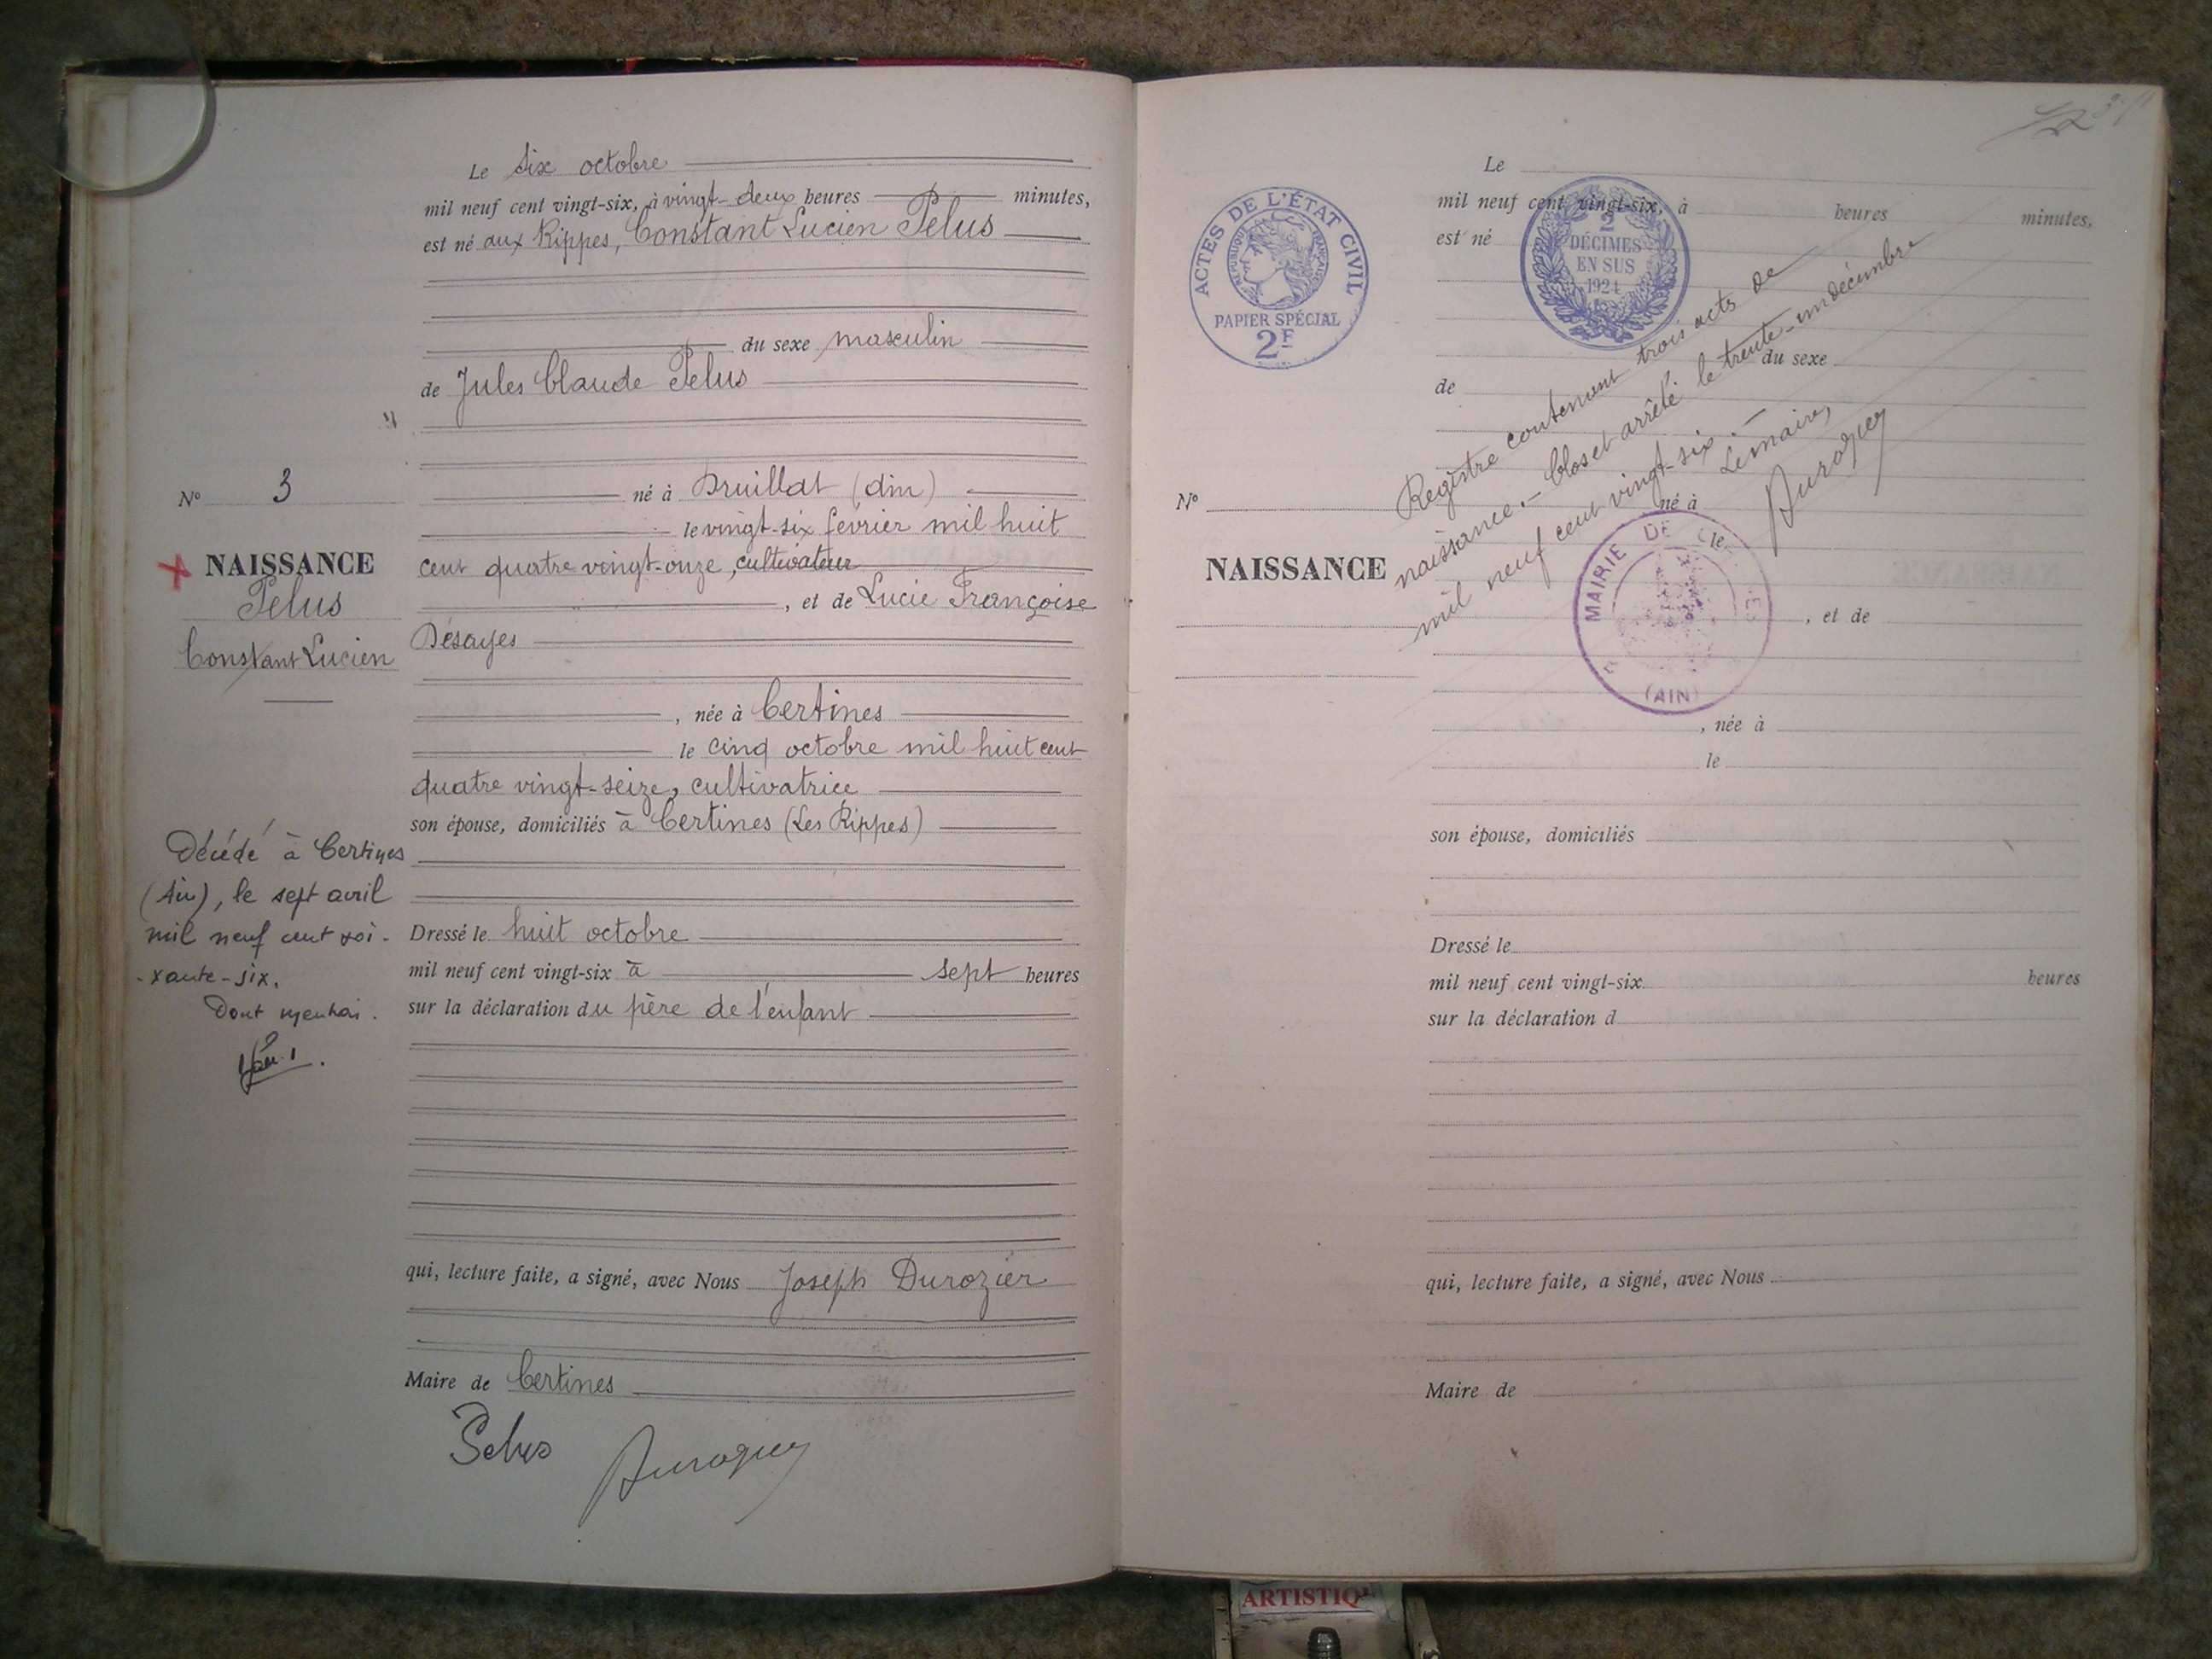 Le six octobre
mil neuf cent vingt-six, à vingt-deux heures minutes,
est né aux Rippes, Constant Lucien Pelus
du sexe masculin
de Jules Claude Pelus
né à Druillat (Ain)
le vingt-six février mil huit
cent quatre vingt-onze, cultivateur
, et de Lucie Françoise
Désayes
, née à Certines
le cinq octobre mil huit cent
quatre vingt-seize, cultivatrice
son épouse, domiciliés à Certines (Les Rippes)
Dressé le huit octobre
mil neuf cent vingt-six à sept heures
sur la déclaration du père de l'enfant
qui, lecture faite, a signé, avec Nous Joseph Durozier
Maire de Certines
Pelus Durozier
N° 3
NAISSANCE
Pelus
Constant Lucien
Décédé à Certines
(Ain), le sept avril
mil neuf cent soi-
-xante-six.
Dont mention.
Le
mil neuf cent vingt-six, à heures minutes,
est né
ACTES DE L'ÉTAT CIVIL
RÉPUBLIQUE FRANÇAISE
PAPIER SPÉCIAL
2F
2
DÉCIMES
EN SUS
1924
du sexe
de
Registre contenant trois acts de
naissance. – Clos et arrêté le trente-un décembre
mil neuf cent vingt-six. –
Le maire,
Durozier
N°
né à
NAISSANCE
le
MAIRIE DE
(AIN)
, et de
, née à
le
son épouse, domiciliés
Dressé le
mil neuf cent vingt-six heures
sur la déclaration d
qui, lecture faite, a signé, avec Nous
Maire de
ARTISTIQ